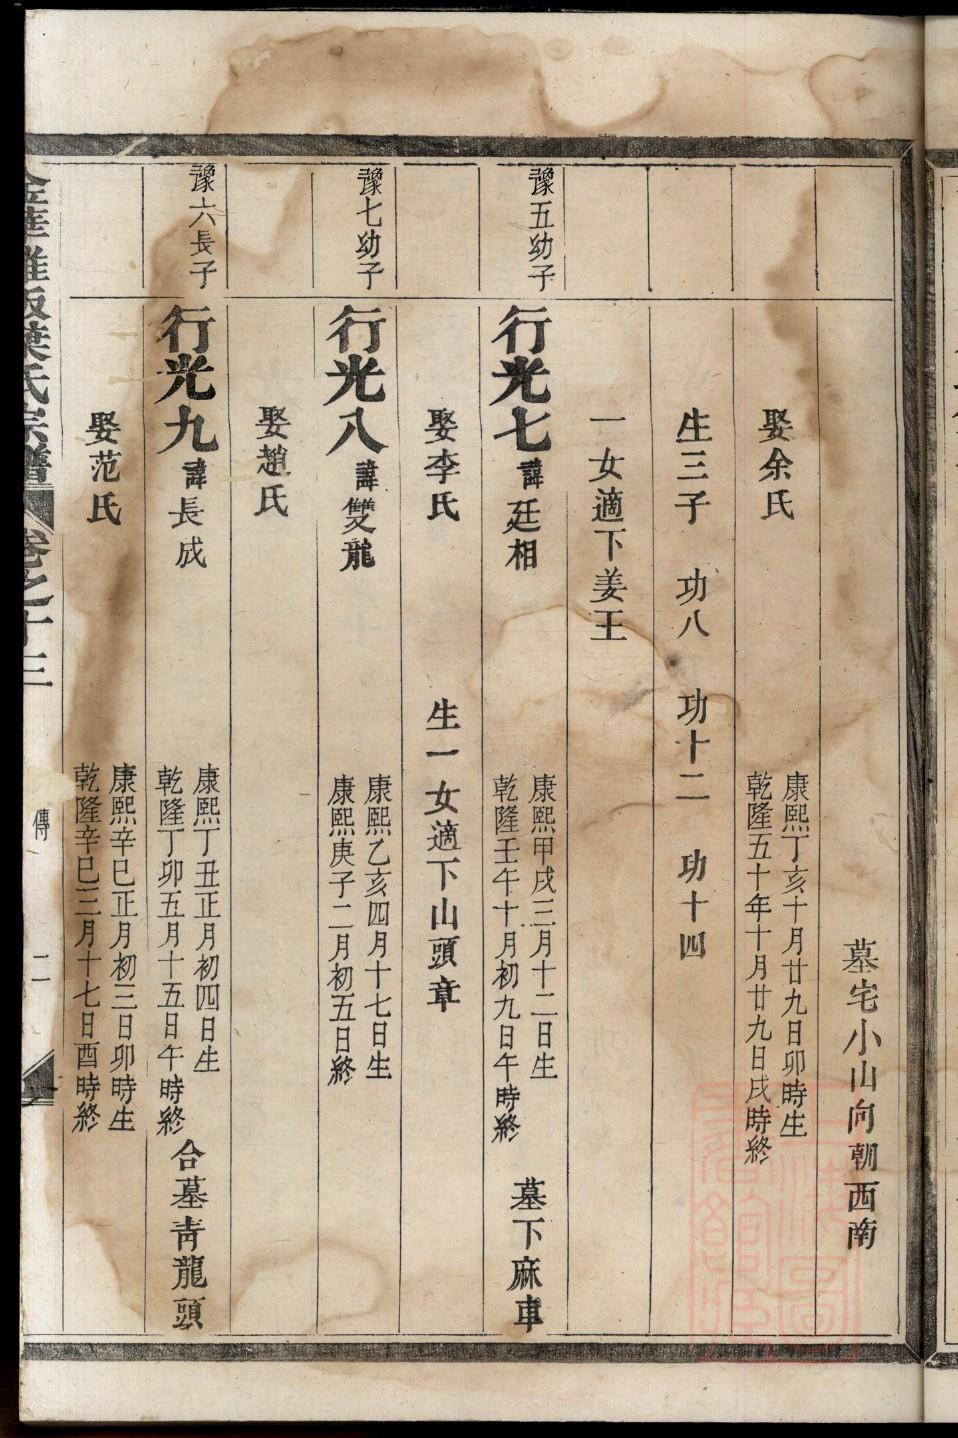 墓宅小山向朝西南
娶余氏
康熙丁亥十月廿九日卯時生
乾隆五十年十月廿九日戌時終
生三子 功八 功十二 功十四
一女適下姜王
豫五幼子
行光七 諱廷相
康熙甲戌三月十二日生
乾隆壬午十月初九日午時終
墓下麻車
娶李氏
生一女適下山頭章
豫七幼子
行光八 諱雙龍
康熙乙亥四月十七日生
康熙庚子二月初五日終
娶趙氏
豫六長子
行光九 諱長成
康熙丁丑正月初四日生
乾隆丁卯五月十五日午時終
合墓青龍頭
娶范氏
康熙辛巳正月初三日卯時生
乾隆辛巳三月十七日酉時終
葉氏宗譜 卷之十三
傳
二